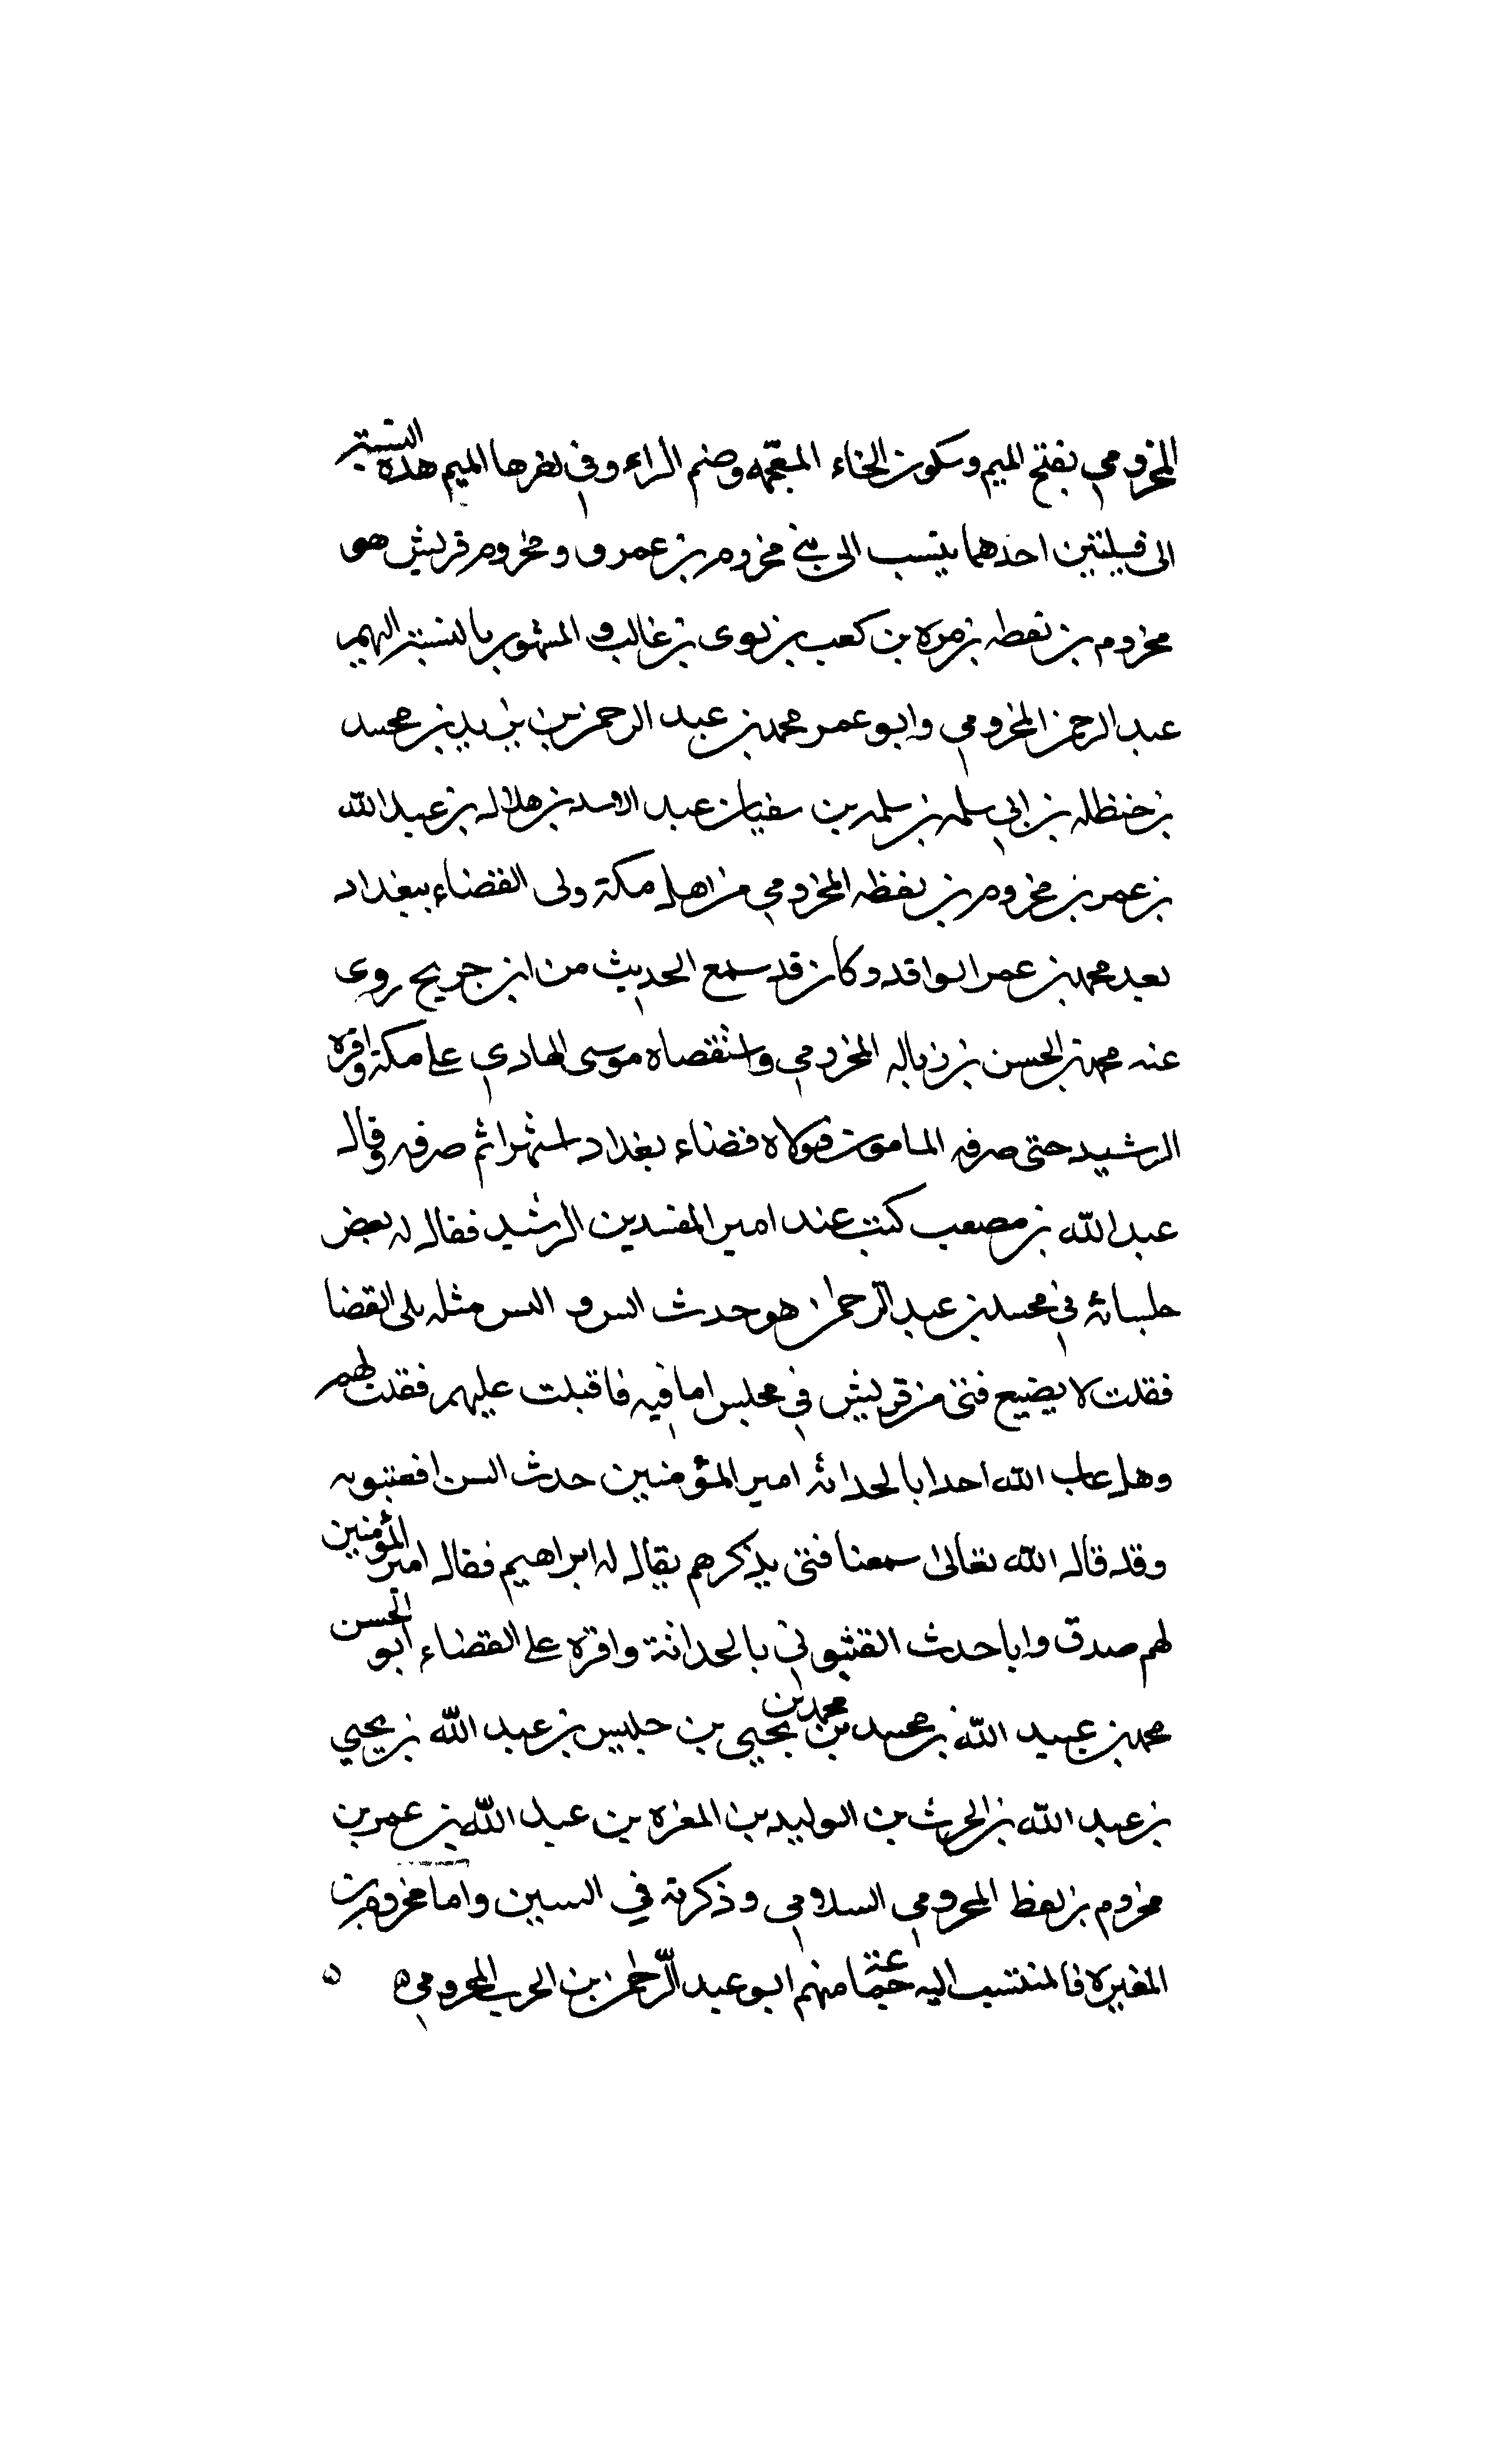 المخزومي بفتح الميم وسكون الخاء المعجمه وضم الراء وفي اخرها الميم هذه النسبة
الى قبيلتين احدهما ينسب الى بني مخزوم بن عمرو ومخزوم قريش هو
مخزوم بن نقطه بن مره بن كعب بن لوى بن غالب و المشهور بالنسبة اليهم
عبد الرحمن المخزومي وابو عمر محمد بن عبد الرحمن بن يزيد بن محمد
بن حنظله بن ابي سلمه بن سلمه بن سفيان عبد الاسد بن هلال بن عبد الله
بن عمر بن مخزوم بن نقظه المخزومي من اهل مكة ولى القضاء ببغداد
بعد محمد بن عمر الواقد وكان قد سمع الحديث من ابن جريج روى
عنه محمد بن الحسن بن زباله المخزومي واستقضاه موسى الهادي على مكة واقره
الرشيد حتى صرفه المامون فولاه قضاء بغداد اشهرا ثم صرفه وقال
عبد الله بن مصعب كنت عند امير المفسدين الرشيد فقال له بعض
جلسائه في محمد بن عبد الرحمان هو حدث السن و اليس مثله يلى القضا
فقلت لا يضيع فتى من قريش في مجلس اما فيه فاقبلت عليهم فقلت لهم
وهل عاب الله احدا بالحداثه امير المؤمنين حدث السن افعتبونه
وقد قال الله تعالى سمعنا فتى يذكرهم يقال له ابراهيم فقال امير المؤمنين
لهم صدق وايا حدث بالحداثة واقره على القضاء ابو الحسن
محمد بن عبيد الله بن محمد بن محمد بن يحيى بن حليس بن عبد الله بن يحيى
بن عبد الله بن الحرث بن الوليد بن المغره بن عبد الله بن عمر بن
مخزوم بن نقظ المخزومي السلامي وذكرته في السين واما مخزوم بن
المغيره فالمنتسب اليه جماعة منهم ابو عبد الرحمن بن الحرب المخزومي ه ه